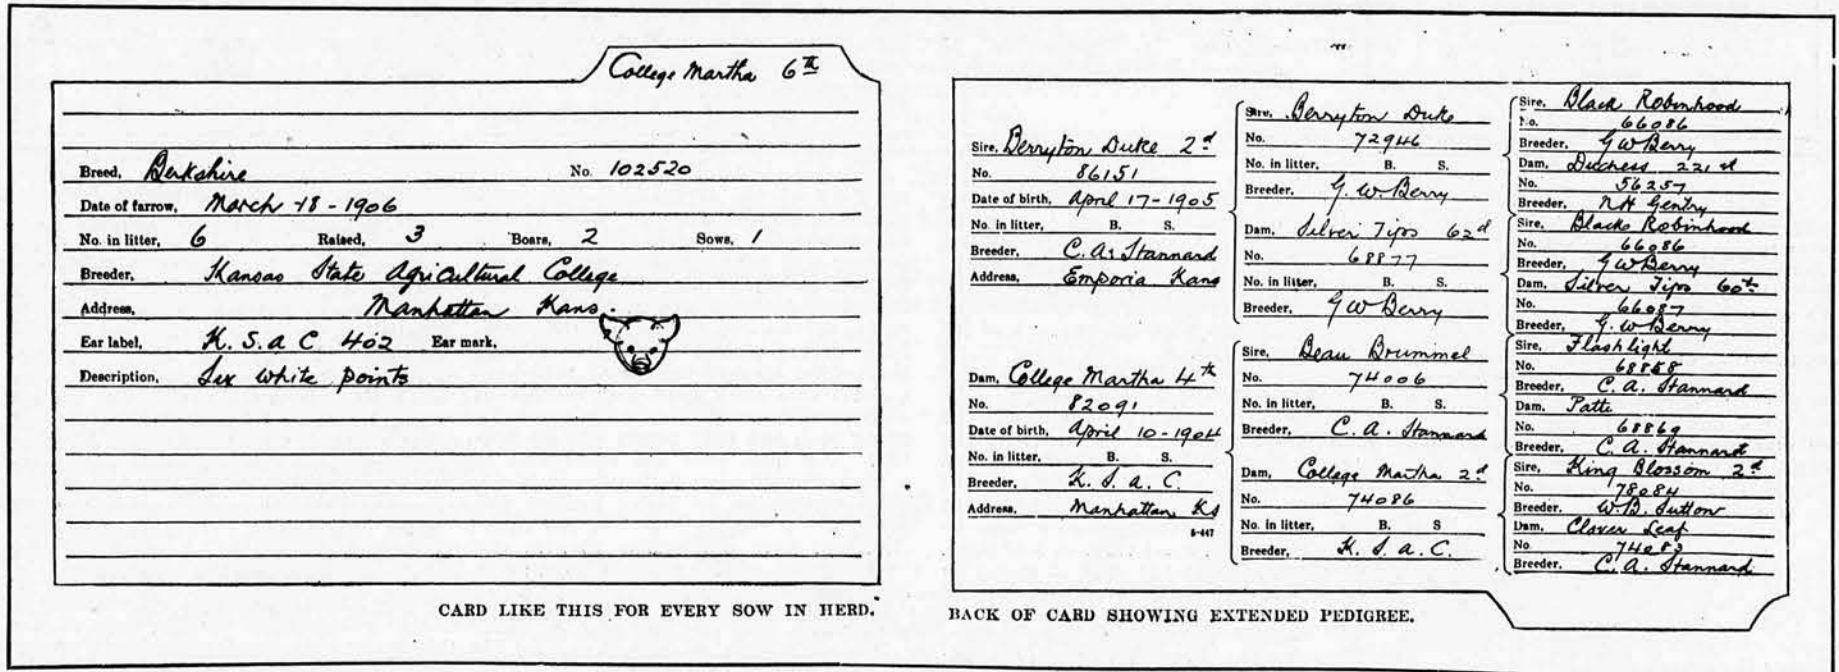 College Martha 6th
Breed, Berkshire No. 102520
Date of farrow, March 18 - 1906
No. in litter, 6 Raised, 3 Boars, 2 Sows, 1
Breeder, Kansas State Agricultural College
Address, Manhattan Kans.
Ear label, K. S. a C. 402 Ear mark,
Description, Six white points
CARD LIKE THIS FOR EVERY SOW IN HERD.
Sire, Berryton Duke 2d
No. 86151
Date of birth, April 17 - 1905
No. in litter, B. S.
Breeder, C. A. Stannard
Address, Emporia Kans
Dam, College Martha 4th
No. 82091
Date of birth, April 10 - 1904
No. in litter, B. S.
Breeder, K. S. a. C.
Address, Manhattan Ks
5-447
Sire, Berryton Duke
No. 72946
No. in litter, B. S.
Breeder, G. W. Berry
Dam, Silver Tips 62d
No. 68877
No. in litter, B. S.
Breeder, G W Berry
Sire, Beau Brummel
No. 74006
No. in litter, B. S.
Breeder, C. A. Stannard
Dam, College Martha 2d
No. 74086
No. in litter, B. S
Breeder, K. S. a. C.
Sire, Black Robinhood
No. 66086
Breeder, G W Berry
Dam, Duchess 221st
No. 56257
Breeder, N H Gentry
Sire, Black Robinhood
No. 66086
Breeder, G W Berry
Dam, Silver Tips 60th
No. 66087
Breeder, G. W Berry
Sire, Flashlight
No. 68868
Breeder, C. A. Stannard
Dam, Patte
No. 68869
Breeder, C. A. Stannard
Sire, King Blossom 2d
No. 78084
Breeder, W. B. Sutton
Dam, Clover Leaf
No. 74083
Breeder, C. A. Stannard
BACK OF CARD SHOWING EXTENDED PEDIGREE.